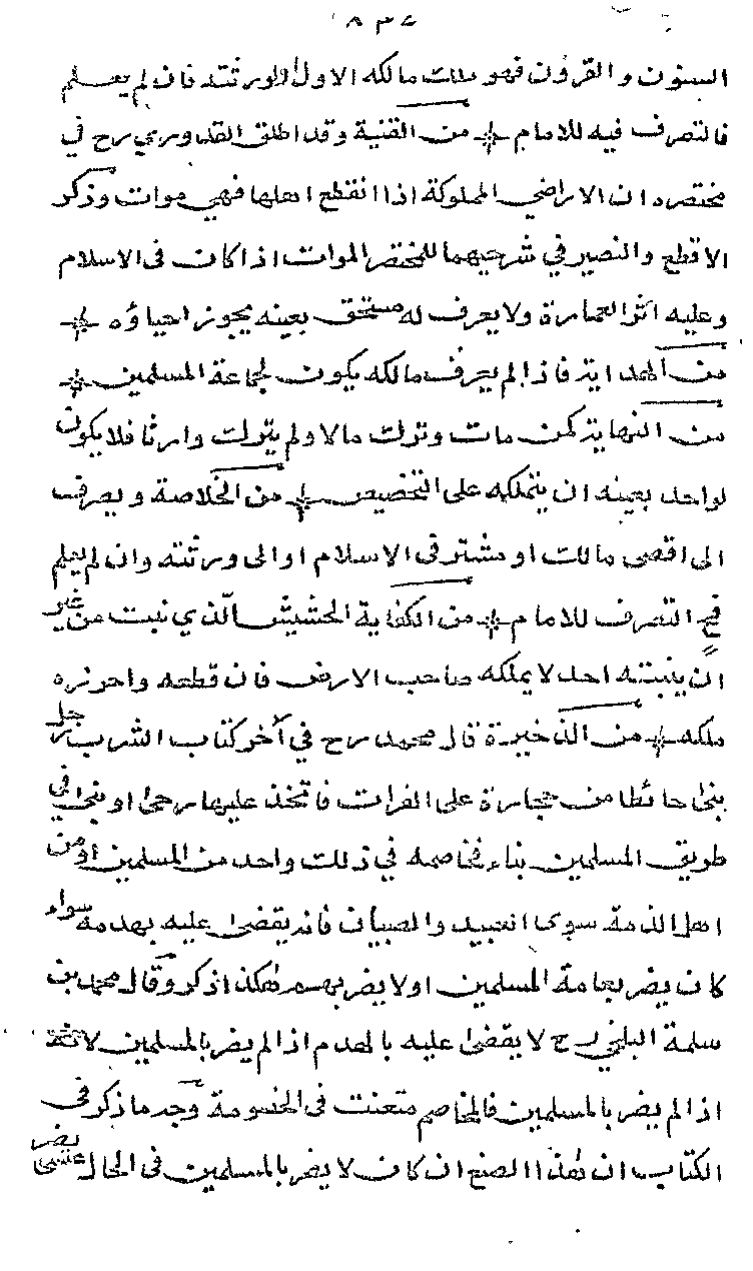 ٨٣٤
السنون والقرون فهو ملك مالكه الاول او لورثته فان لم يعلم
فالتصرف فيه للامام من القنية وقد اطلق القدوري رح في
مختصره ان الاراضي المملوكة اذا انقطع اهلها فهي موات وذكر
الاقطع والنصير في شرحيهما للمختصر الموات اذا كان فى الاسلام
وعليه اثر العمارة ولا يعرف له مستحق بعينه يجوز احياؤه
من الهداية فاذا لم يعرف مالكه يكون لجماعة المسلمين
من النهاية كمن مات وترك مالا ولم يترك وارثا فلا يكون
لواحد بعينه ان يتملكه على التخصيص من الخلاصة ويصرف
الى اقصى مالك او مشتر فى الاسلام او الى ورثته وان لم يعلم
فح التصرف للامام من الكفاية الحشيش الّذي نبت من غير
ان ينبته احد لا يملكه صاحب الارض فان قطعه واحرزه
ملكه من الذخيرة قال محمد رح في آخر كتاب الشرب رجل
بنى حائطا من حجارة على الفرات فاتخذ عليها رحىً او بنى في
طريق المسلمين بناء فخاصمه في ذلك واحد من المسلمين او من
اهل الذمة سوى العبيد والصبيان فانه يقضى عليه بهدمه سواء
كان يضر بعامة المسلمين او لا يضر بهم هكذا ذكر وقال محمد بن
سلمة البلخي رح لا يقضى عليه بالهدم اذا لم يضر بالمسلمين لانه
اذا لم يضر بالمسلمين فالمخاصم متعنت فى الخصومة وجه ما ذكر فى
الكتاب ان هذا الصنع ان كان لا يضر بالمسلمين فى الحال عسى يضر